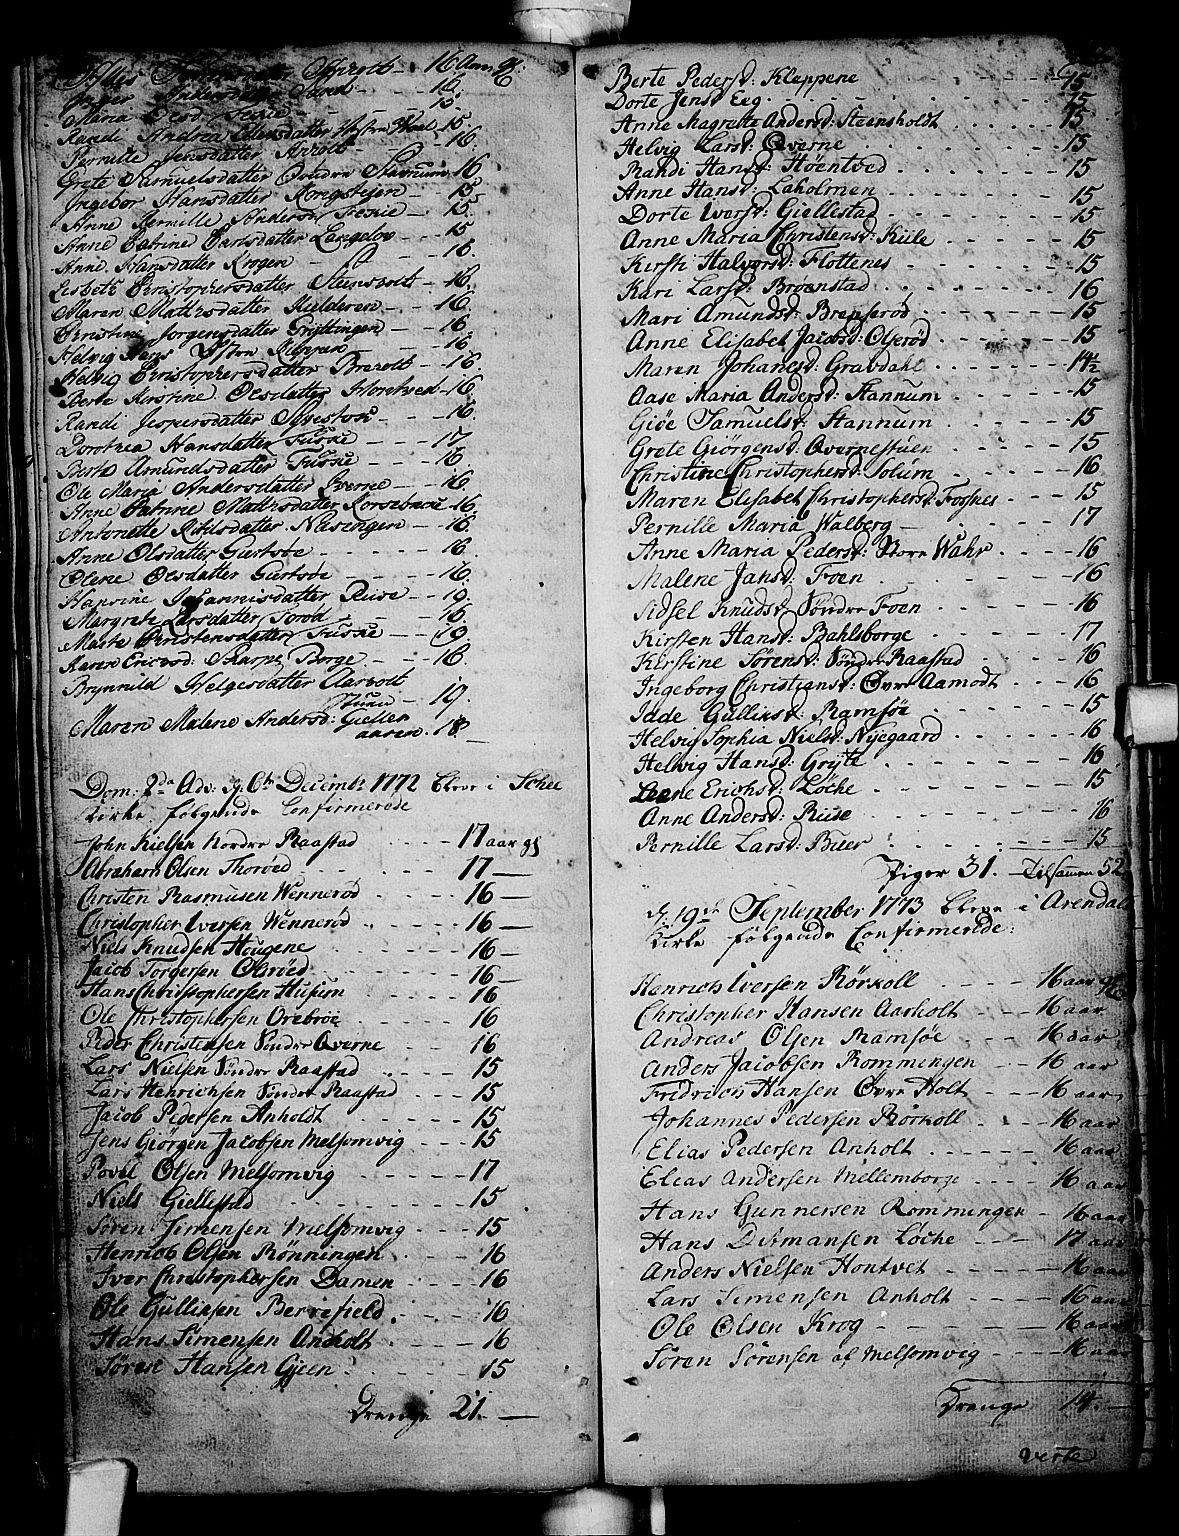 Inger Andersdatter Sand - 16.
Maria Olsd: Fuske - - 15.
Randi Andrea Edensdatter Vestre Hval 15.
Pernille Jensdatter Arrolt - - 16.
Grete Samuelsdatter Søndre Stavnum 16
Ingebor Hansdatter Kongstejen - 15.
Anne Pernille Andersd: Fuske - - 15.
Anne Catrine Carlsdatter Langeløv - - 15
Anne Hansdatter Krogen - - 16.
Lisbeth Christophersdatter Steensholt - 16.
Maren Mathisdatter Mulderen - - 16.
Christine Jorgensdatter Gryttingen - - 16.
Helvig Hans Vestre Klippen - - 16.
Helvig Christophersdatter Brerolt - - 16.
Berte Kirstine Olsdatter Hontved - 16.
Randi Jespersdatter - - 16.
Dorothea Hansdatter Fuske - - - 17
Berte Amundsdatter Fuske - - - 16
Ole Marie Andersdatter Everne - - 16
Anne Catrine Mathisdatter Korsebacke 16.
Antonette Nilsdatter Nasengen - - 16.
Anne Olsdatter Giertsøe - - - - - 16.
Olene Olsdatter Giertsøe - - - - 16.
Hansine Johannisdatter Ruse - - 19.
Margrete Larsdatter Torød - - - - 16.
Marte Christensdatter Fuske - - 19
Karen Ericsd: Skarpe Borge - - - 16.
Brynnild Helgesdatter Aarholt
Stuen - - 19.
Maren Malene Andersd: Gieller
aaren. 18. -
Dom: 2da Adv: d 6te Decembr 1772 bleve i Schee
Kirke følgende Confirmerede
John Nielsen Nordre Raastad - - - - 17 aar gl
Abraham Olsen Thorøed - - - - 17 -
Christen Rasmusen Wennerød - - - 16 -
Christopher Iversen Wennerød - - - 16 -
Niels Knudsen Hougene - - - - 16 -
Jacob Torgersen Olsrøed - - - - 16 -
Hans Christophersen Husum - - - 16
Ole Christophersen Orebrøe - - - - 16
Peder Christensen Søndre Qverne - - - 16
Lars Nielsen Søndre Raastad - - - - 15
Lars Henrichsen Søndre Raastad - - - 15
Jacob Pedersen Anholdt - - - - 15
Jens Giørgen Jacobsen Melsomvig - - - 15
Povel Olsen Melsomvig - - - - 17
Niels Giellestad - - - - - - 15
Søren Simensen Melsomvig - - - - 15
Henrich Olsen Rønningen - - - - 16
Iver Christophersen Damen - - - - 16
Ole Gullicksen Berrefield - - - - 16
Hans Simensen Anholt - - - - 16
Søren Hansen Gieen - - - - - 15
Drenge 21. -
Berte Pedersd: Kleppene - - - - 15
Dorte Jensd: Eeg - - - - - - 15
Anne Magrette Andersd: Steensholdt - - - - 15
Helvig Larsd: Qverne - - - - - 15
Randi Hansd: Høentved - - - - - 15
Anne Hansd: Laholmen - - - - - 15
Dorte Iversd: Giellestad - - - - - 15
Anne Maria Christensd: Kiile - - - - 15
Kirsti Halvorsd: Flottenes - - - - - 15
Kari Larsd: Broenstad - - - - - 16
Mari Amundsd: Brepserød - - - - 15
Anne Elisabet Jacobsd: Olsrød - - - 15
Maren Johanesd: Gravdahl - - - - 14½
Aase Maria Andersd: Hannum - - - - 15
Giøe Samuelsd: Hannum - - - - - 15
Grete Giörgensd: Qvernestuen - - - - 15
Christine Christophersd: Solum - - - - 16
Maren Elisabet Christophersd: Foxnes - - - 15
Pernille Maria Walberg - - - - - 17
Anne Maria Pedersd: Store Wahr - - - 16
Malene Jansd: Foen - - - - - 16
Sidsel Knudsd: Søndre Foen - - - - 16
Kirsten Hansd: Bahlsborge - - - - 17
Kirstine Sørensd: Søndre Raastad - - - 16
Ingeborg Christiansd: Øvre Aamodt - - - 16
Idde Gulliksd: Ramsøe - - - - - 15
Helvig Sophia Nielsd: Nyegaard - - - - 16
Helvig Hansd: Gryte - - - - - 16
Leene Erichsd: Løcke - - - - - 15
Anne Andersd: Ruse - - - - - 16
Pernille Larsd: Buer - - - - - 15
Piger 31. - Tilsamen 52
d: 19de September 1773 bleve i Arendal
Kirke følgende Confirmerede:
Henrich Iversen Rørkoll - - - - 16 aar gl:
Christopher Hansen Aarholt - - - 16 aar
Andreas Olsen Ramsøe - - - - 16 aar
Anders Jacobsen Rommingen - - 16 aar
Fridrich Hansen Øvre Holt - - - 16 aar
Johannes Pedersen Rørkoll - - - - 16 aar
Elias Pedersen Anholt - - - - - 16 aar
Elias Andersen Mellemborge - - - 16 aar
Hans Gunnersen Rommingen - - 16 aar
Hans Ditmansen Løcke - - - - 17 aar
Anders Nielsen Hontvet - - - - 16 aar
Lars Simensen Anholt - - - - 16 aar
Ole Olsen Krog - - - - - 16 aar
Søren Sørensen af Melsomvig - - - 16 aar
Drenge 14. -
verte